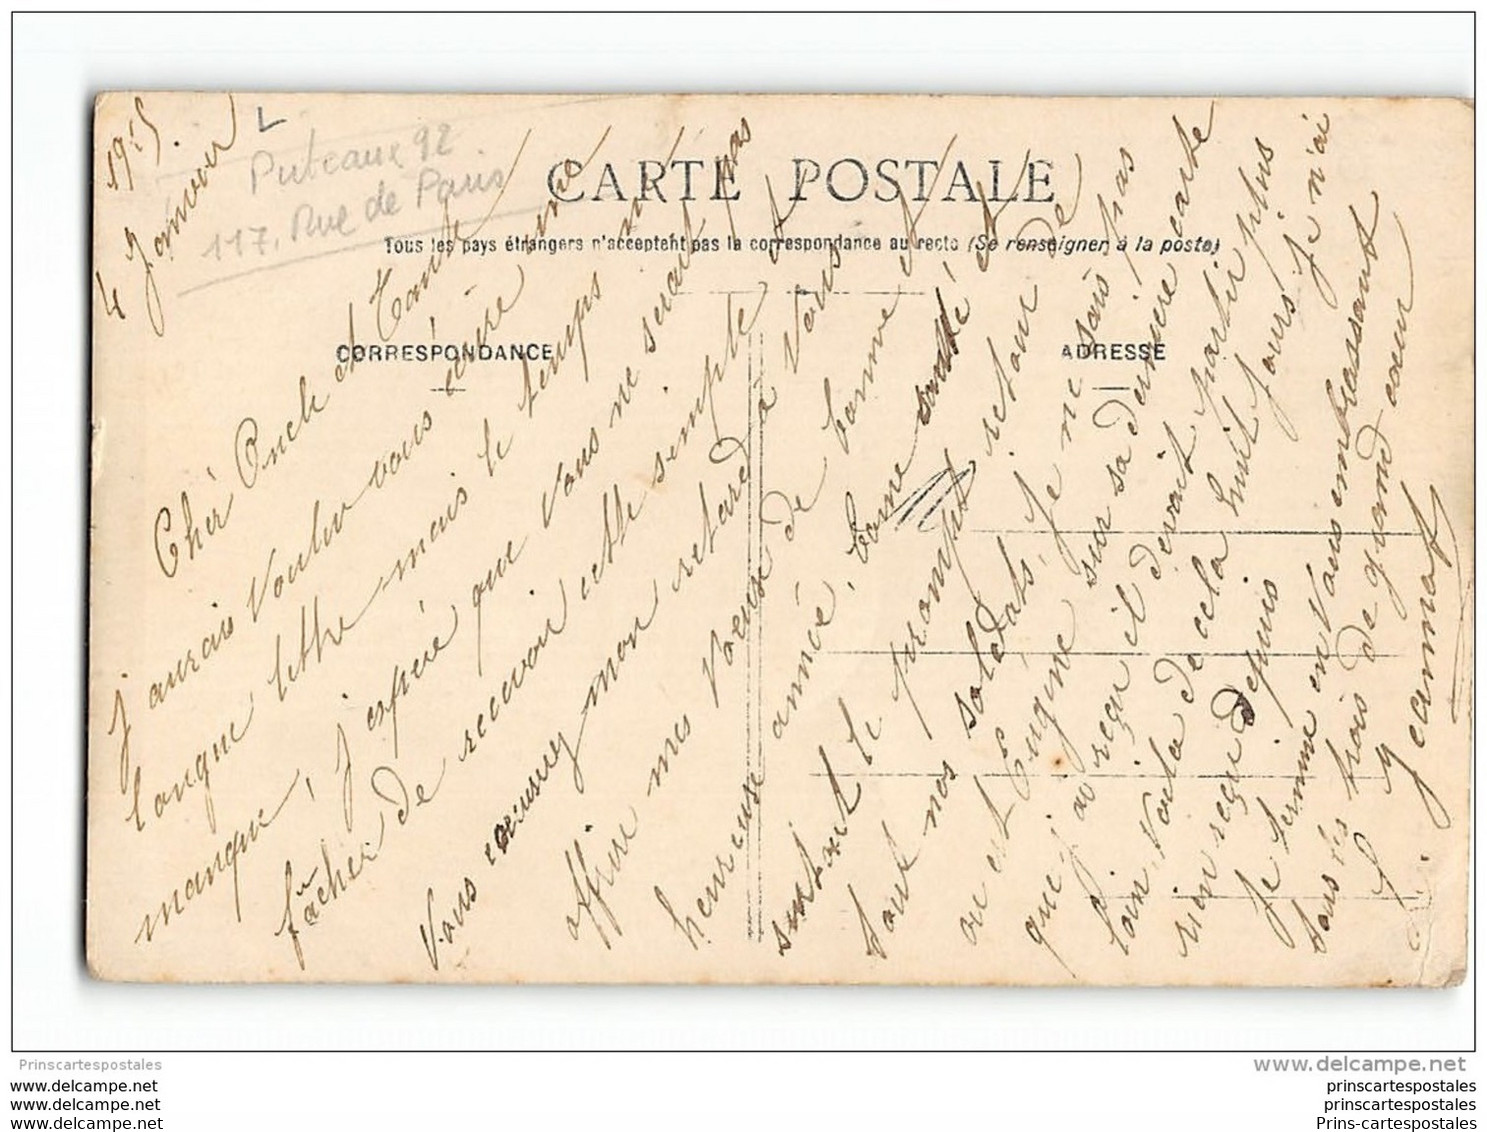 4 Janvier 1915.
Puteaux 92
117, Rue de Paris
CARTE POSTALE
Tous les pays étrangers n'acceptent pas la correspondance au recto (Se renseigner à la poste)
CORRESPONDANCE
ADRESSE
Chér Oncle et Tante
j'aurais Voulu vous ecrire une
longue lettre mais le temps m'
manque, j'espére que Vous ne serait pas
fâcher de recevoir cette simple
Vous excuserez mon retard à Vous
offrir mes Voeux de bonne et
heureuse année, bonne santé et
surtout le prompt retour de
tout nos soldats, Je ne sais pas
ou est Eugène sur sa dernière carte
que j'ai reçu il devait partir plus
loin, Voila de cela huit jours je n'ai
rien reçu depuis
Je termine en Vous embrassant
tous les trois de grand coeur
Jeannot
Prinscartespostales
www.delcampe.net
www.delcampe.net
www.delcampe.net
www.delcampe.net
prinscartespostales
prinscartespostales
Prins-cartespostales